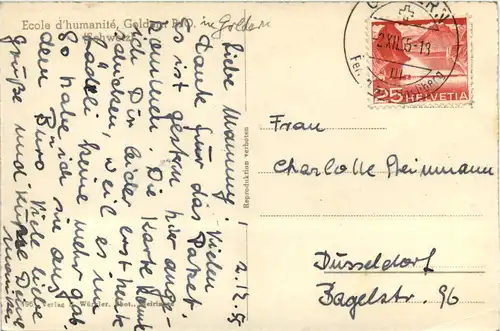 Ecole d'humanité, Goldern B.O. in Goldern
(Schweiz)
2.12.55
Liebe Mammy! Vielen
Dank für das Paket.
es ist gestern hier ange-
kommen. Die Karte
ich Dir leider erst heute
schicken, weil es im
Lädeli keine mehr gab.
So habe ich sie aus
dem Büro. Viele liebe
Grüße und Küsse Deine
Verlag
Reproduktion verboten
2.XII.55-18
25 HELVETIA
Frau
Charlotte
Düsseldorf
Bagelstr. 96